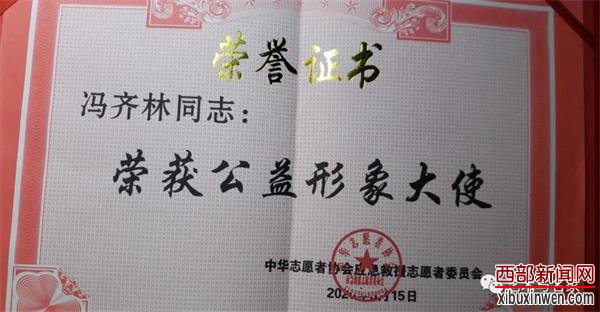 荣誉证书
冯齐林同志：
荣获公益形象大使
中华志愿者协会应急救援志愿者委员会
月15日
西部新闻网
xibuxinwen.com